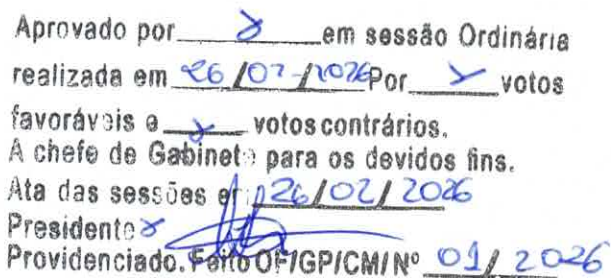 Aprovado por em sessão Ordinária
realizada em 26/02/2026 Por votos
favoráveis e votos contrários.
A chefe de Gabinete para os devidos fins.
Ata das sessões em 26/02/2026
Presidente
Providenciado. Feito OF/GP/CM/Nº 01/2026